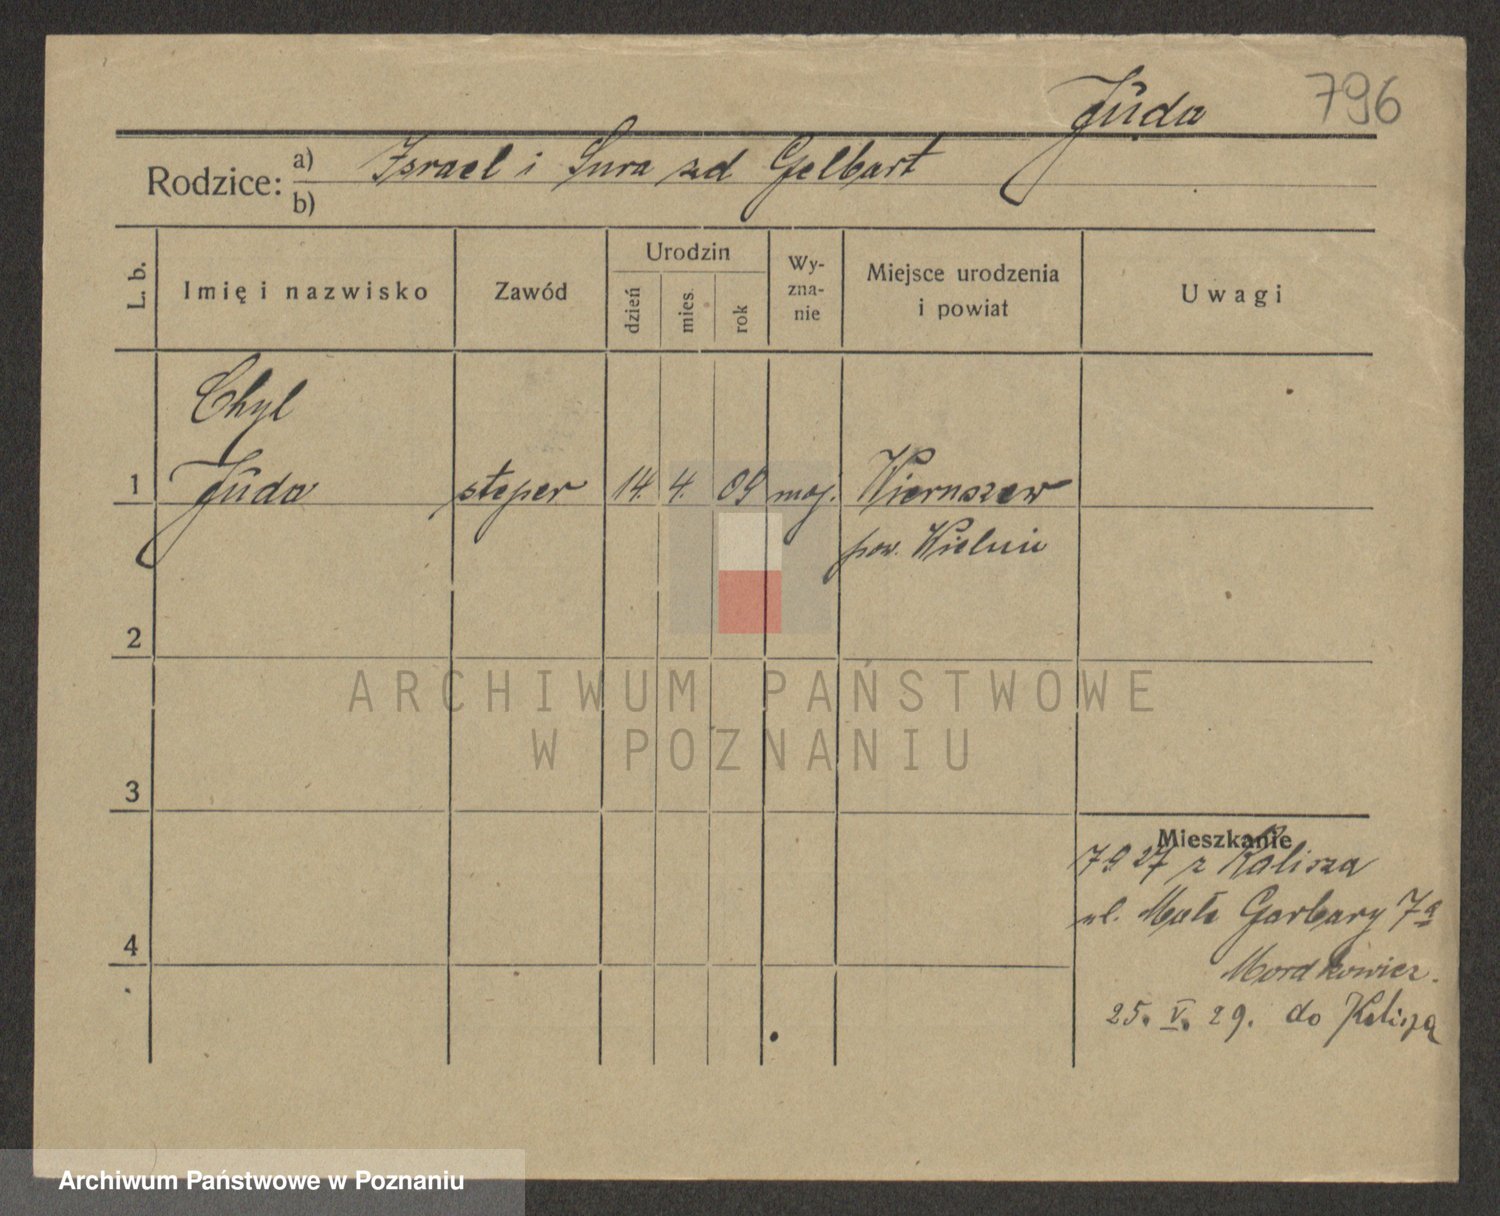 796
Juda
Rodzice: a) Israel i Sura zd Gelbart
b)
L. b. Imię i nazwisko Zawód Urodzin dzień mies. rok Wyznanie Miejsce urodzenia i powiat Uwagi
Chyl
1 Juda steper 14. 4. 09 moj. Wieruszew
pow. Wieluń
2
ARCHIWUM PAŃSTWOWE
W POZNANIU
3
Mieszkanie
7 9 27 z Kalisza
ul. Małe Garbary 7a
4
Mordkowicz.
25. V. 29. do Kalisza
Archiwum Państwowe w Poznaniu